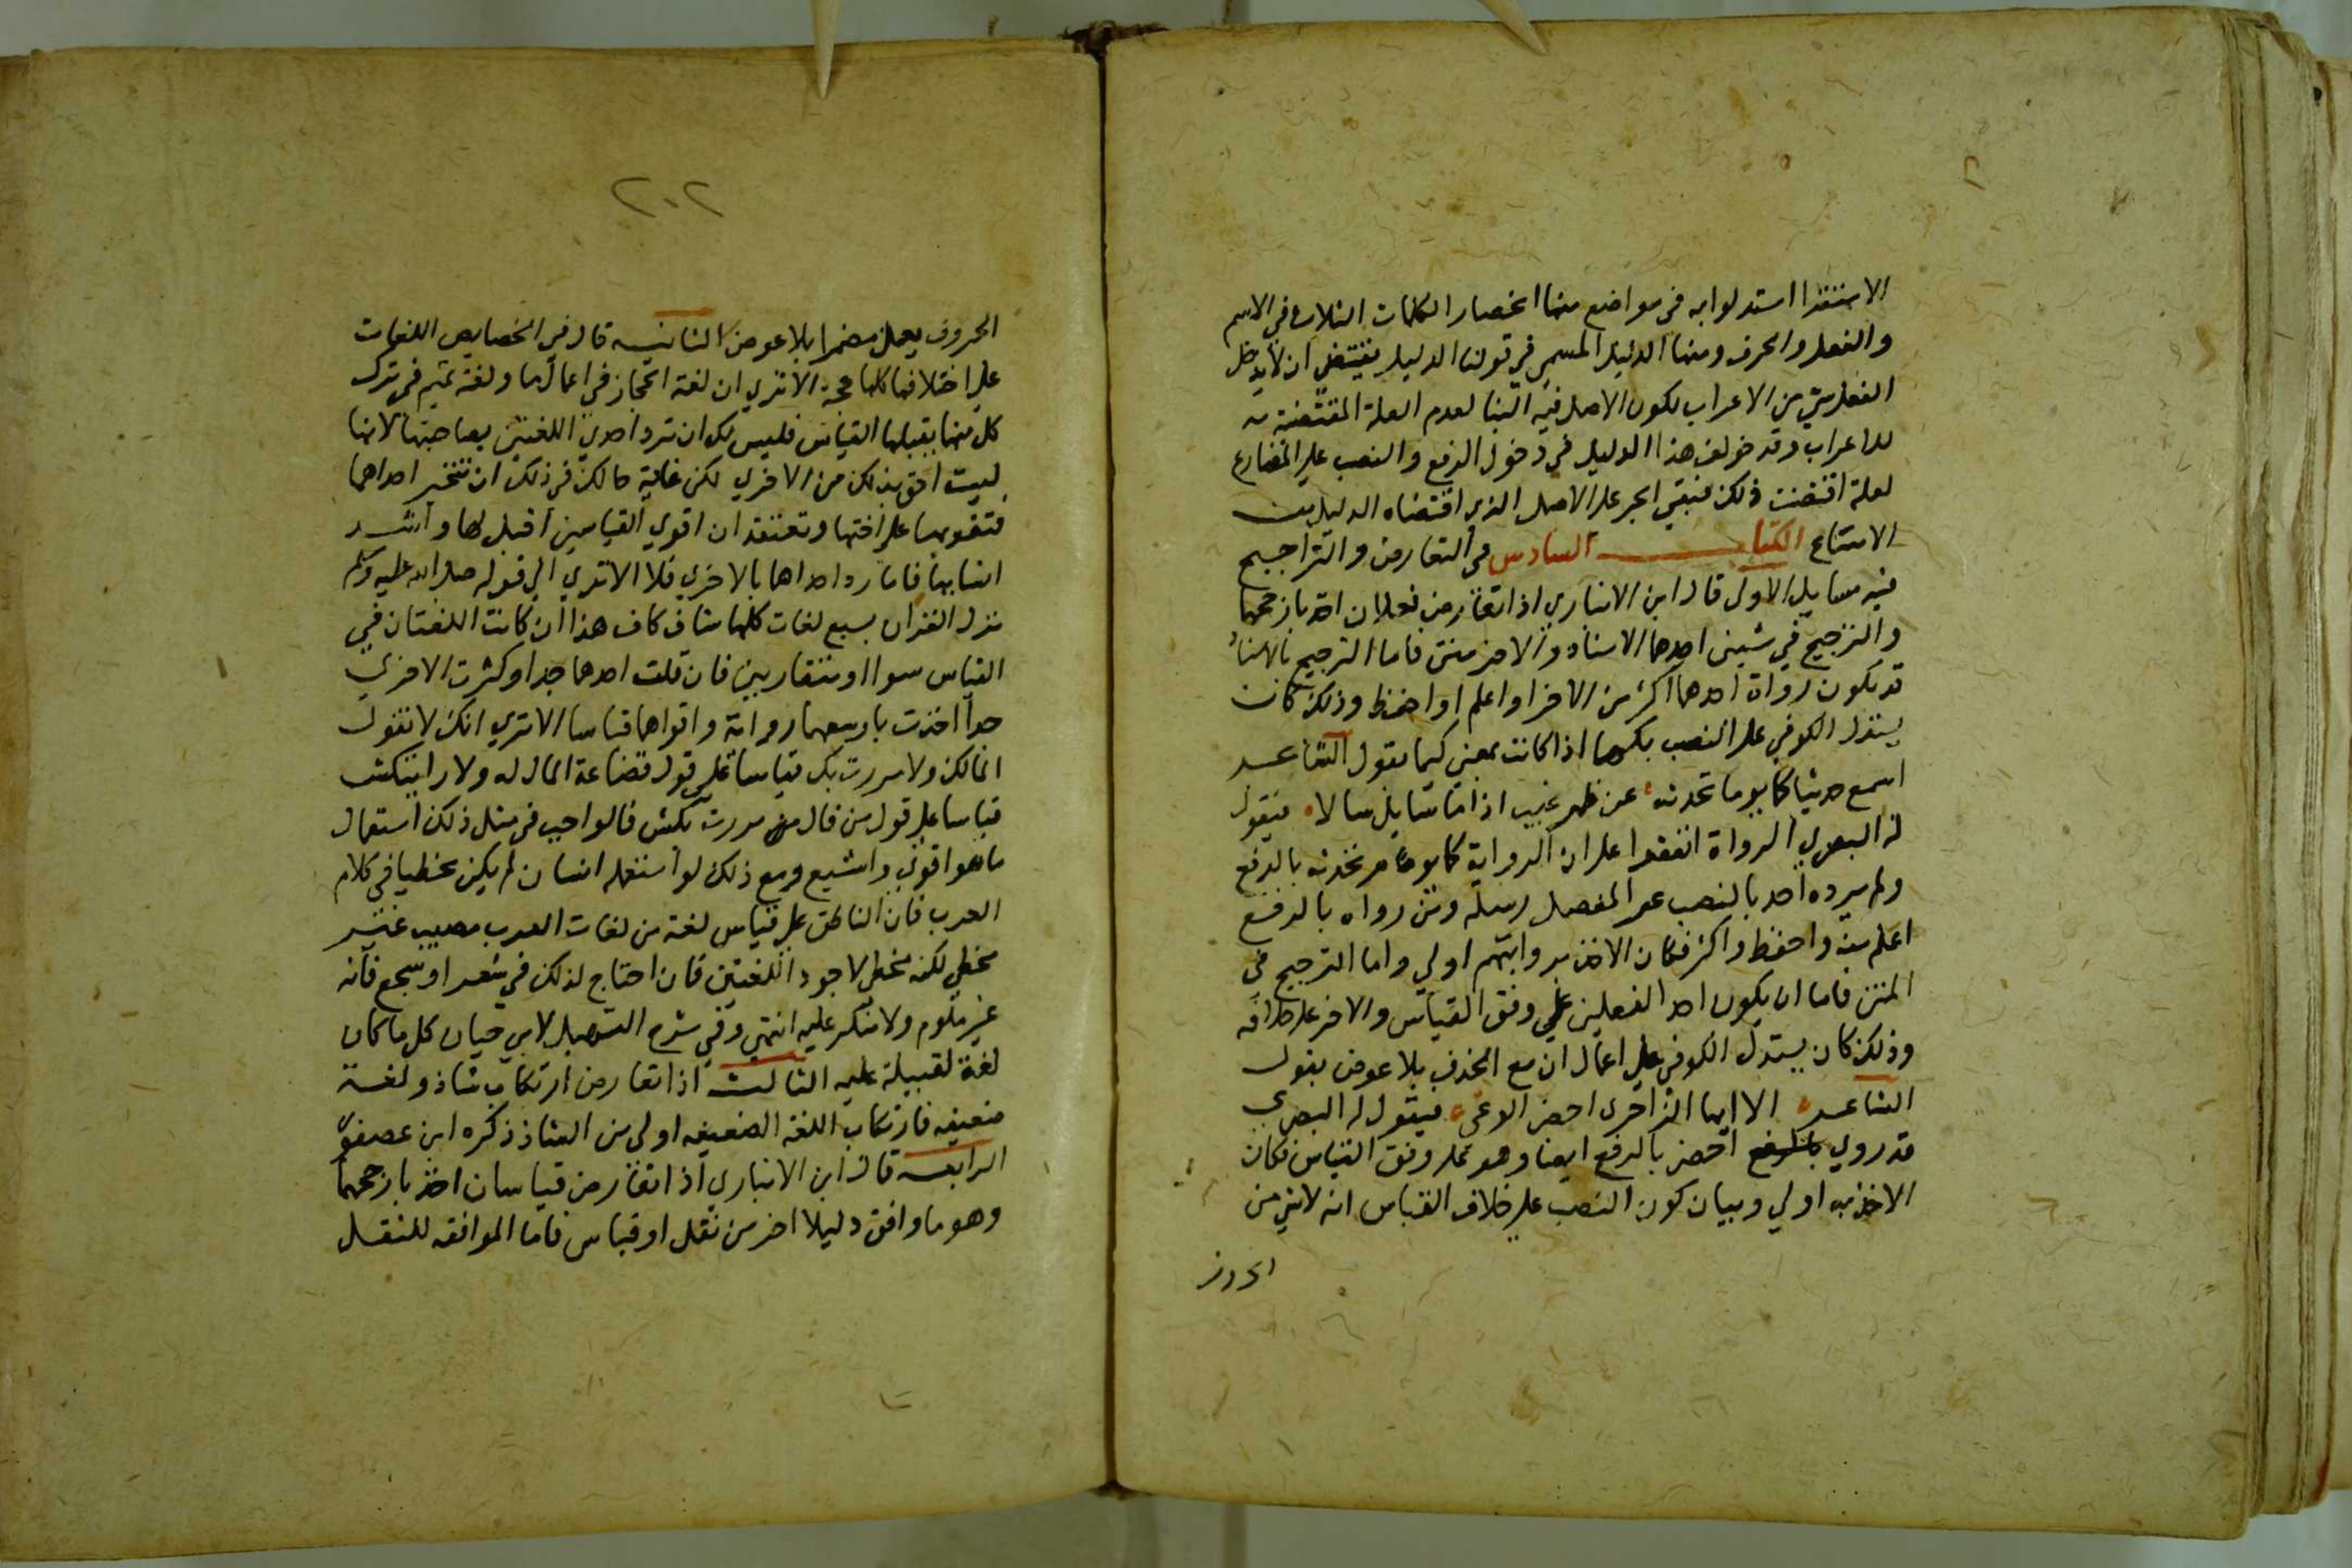 الاستقرا استدلوا به في مواضع منها انحصار الكلمات الثلاث في الاسم
والفعل والحرف ومنها الدليل المسمي في قولنا الدليل يقتضي ان لا يدخل
الفعل شي من الاعراب لكون الاصل فيه البنا لعدم العلة المقتضية
للاعراب وقد خولف هذا الدليل في دخول الرفع والنصب على المضارع
لعلة اقتضت ذلك فبقي الجر على الاصل الذي اقتضاه الدليل من
الامتناع الكتاب السادس في التعارض والتراجيح
فيه مسايل الاولى قال ابن الانباري اذا تعارض نقلان اخذ بارجحهما
والترجيح في شيئين احدهما الاسناد والاخر متن فاما الترجيح بالاسناد
قد يكون رواة احدهما اكثر من الاخر او اعلم او احفظ وذلك كان
يستدل الكوفي على النصب بكما اذا كانت بمعني كيما بقول الشاعر
اسمع حديثا كما يوما تحدثه عن ظهر غيب اذا ما سايل سالا فيقول
له البصري الرواة اتفقوا على ان الرواية كما يوما تحدثه بالرفع
ولم يروه احد بالنصب غير المفضل بن سلمة ومن رواه بالرفع
اعلم منه واحفظ واكثر فكان الاخذ بروايتهم اولي واما الترجيح في
المتن فاما ان يكون احد النقلين علي وفق القياس والاخر على خلافه
وذلك كان يستدل الكوفي علي اعمال ان مع الحذف بلا عوض بقول
الشاعر الا ايها الزاجري احضر الوغى فيقول له البصري
قد روي احضر بالرفع ايضا وهو على وفق القياس فكان
الاخذ به اولي وبيان كون النصب على خلاف القياس انه لا شي من
الحروف
٢٠٢
الحروف يعمل مضمرا بلا عوض الثانية قال في الخصايص اللغات
علي اختلافها كلها حجة الا تري ان لغة الحجاز في اعمال ما ولغة تميم في ترك
كل منهما يقبلها القياس فليس لك ان ترد احدي اللغتين بصاحبتها لانها
ليست احق بذلك من الاخري لكن غاية ما لك في ذلك ان تتخير احداهما
فتقويها على اختها وتعتقد ان اقوي القياسين اقبل لها واشد
انسا بها فاما رد احداهما بالاخري فلا الا تري الى قوله صلى الله عليه وسلم
نزل القران بسبع لغات كلها شاف كاف هذا ان كانت اللغتان في
القياس سوا او متقاربين فان قلت احدهما جدا وكثرت الاخري
جدا اخذت باوسعهما رواية واقواهما قياسا الا تري انك لا تقول
المال لك ولا مررت بك قياسا علي قول قضاعة المال له ولا رايتكش
قياسا علي قول من قال مررت بكش فالواجب في مثل ذلك استعمال
ما هو اقوي واشيع ومع ذلك لو استعمله انسان لم يكن مخطيا في كلام
العرب فان الناطق على قياس لغة من لغات العرب مصيب غير
مخطي لكنه مخطي لاجود اللغتين فان احتاج لذلك في شعر او سجع فانه
غير ملوم ولا منكر عليه انتهي وفي شرح التسهيل لابي حيان كل ما كان
لغة لقبيلة عليه الثالث اذا تعارض ارتكاب شاذ ولغة
ضعيفه فارتكاب اللغة الضعيفه اولى من الشاذ ذكره ابن عصفور
الرابعه قال ابن الانباري اذا تعارض قياسان اخذ بارجحهما
وهو ما وافق دليلا اخر من نقل او قياس فاما الموافقه للنقل